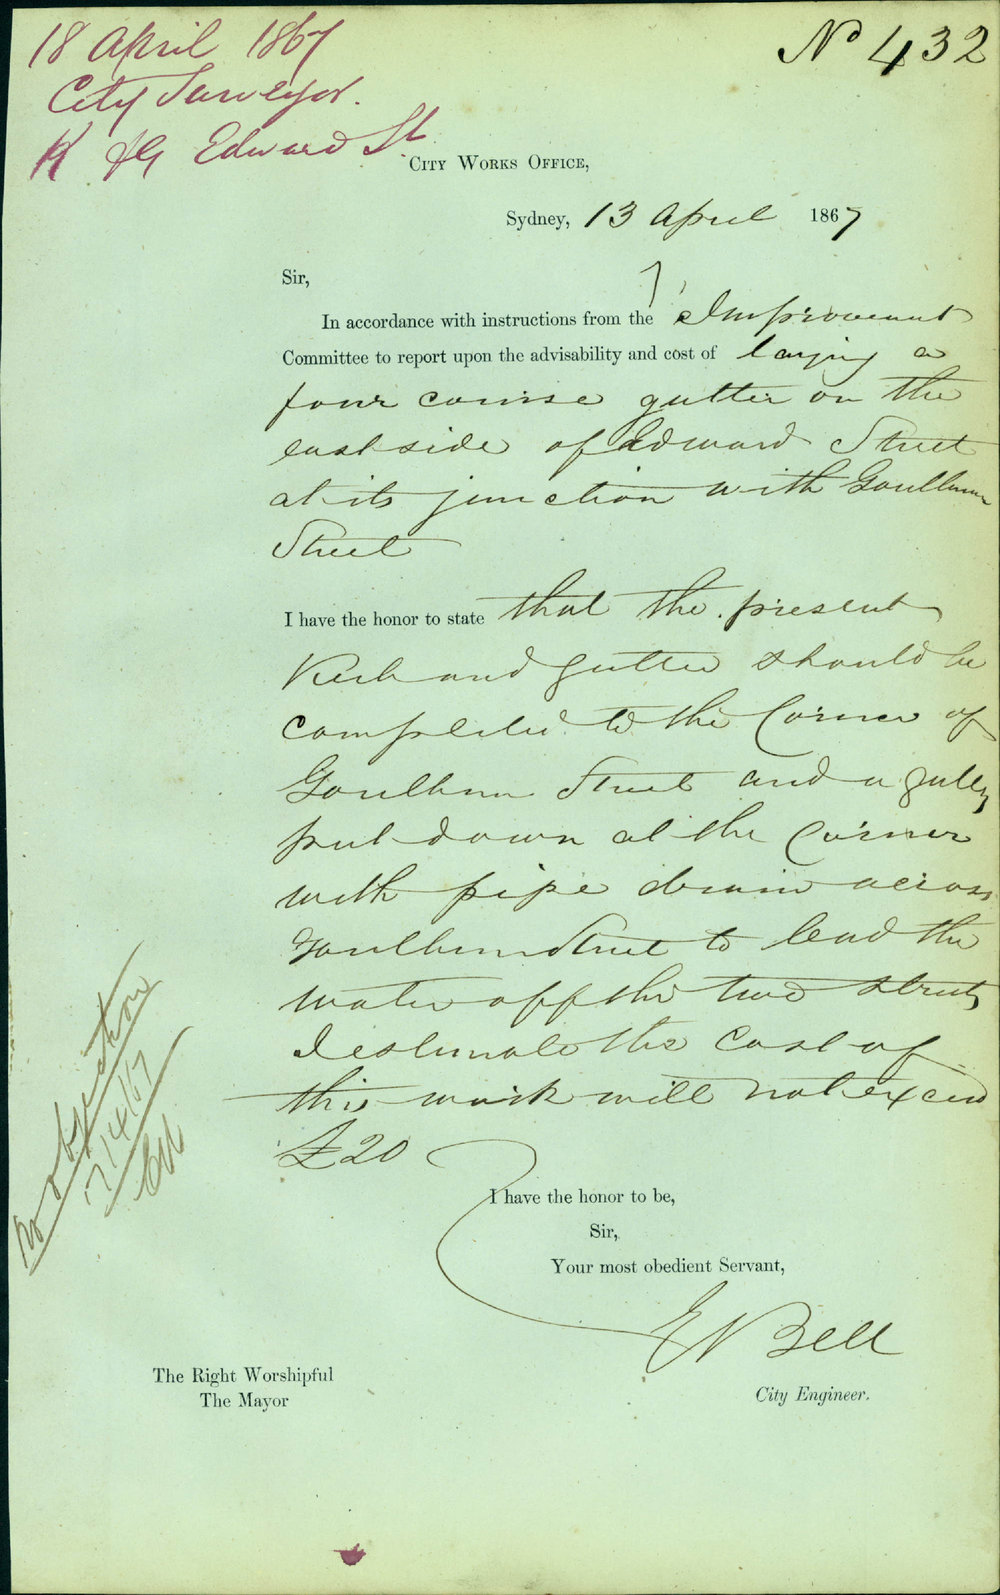 18 April 1867
City Surveyor.
K & G Edward St
No 432
City Works Office,
Sydney, 13 April 1867
Sir,
In accordance with instructions from the Improvement
Committee to report upon the advisability and cost of laying a
four course gutter on the
east side of Edward Street
at its junction with Goulburn
Street
I have the honor to state that the present
Kerb and gutter should be
completed to the Corner of
Goulburn Street and a gully
put down at the Corner
with pipe drain across
Goulburn Street to lead the
water off the two streets
I estimate the cost of
this work will not exceed
£20
I have the honor to be,
Sir,
Your most obedient Servant,
E Bell
City Engineer.
The Right Worshipful
The Mayor
No objection
17/4/67